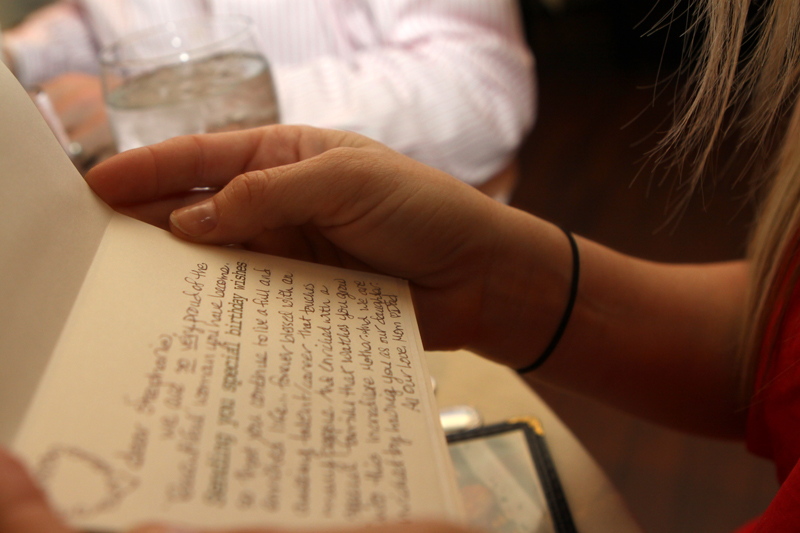 Dear Stephanie,
We are so very proud of the
Beautiful woman you have become.
Sending you special birthday wishes
so that you continue to live a full and
life - forever blessed with an
amazing talent/career that touches
many people and enriched with a
special family that watches you grow
into this incredible Mother. And we are
enriched by having you as our daughter
All our love Mom